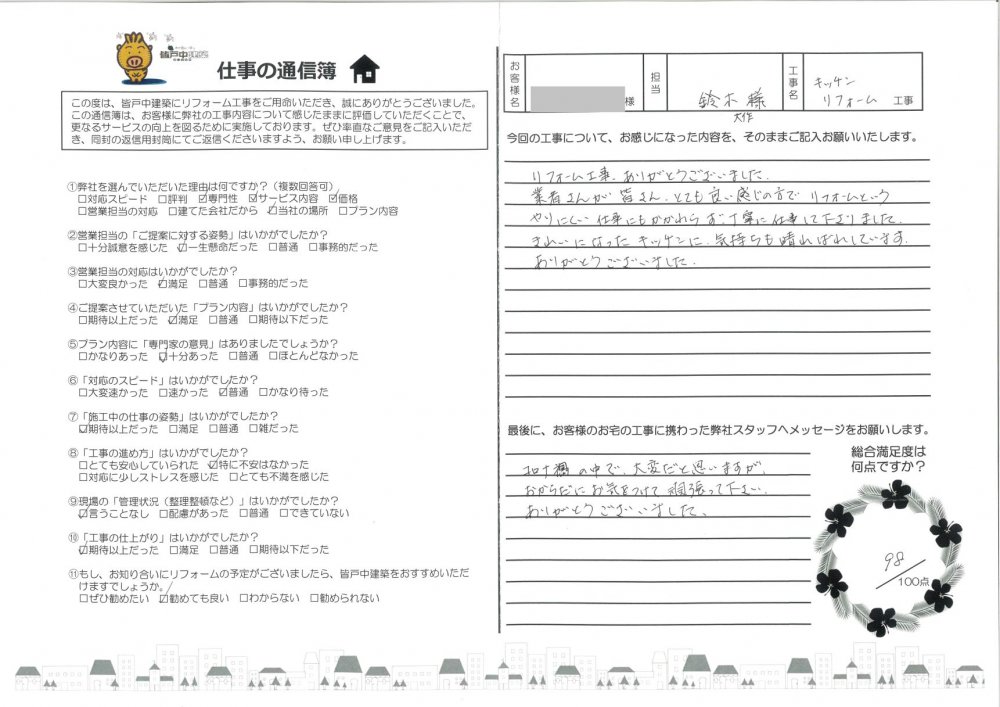 皆戸中建築
仕事の通信簿
この度は、皆戸中建築にリフォーム工事をご用命いただき、誠にありがとうございました。
この通信簿は、お客様に弊社の工事内容について感じたままに評価していただくことで、
更なるサービスの向上を図るために実施しております。ぜひ率直なご意見をご記入いただ
き、同封の返信用封筒にてご返信くださいますよう、お願い申し上げます。
①弊社を選んでいただいた理由は何ですか？（複数回答可）
□対応スピード □評判 ☑専門性 ☑サービス内容 ☑価格
□営業担当の対応 □建てた会社だから ☑当社の場所 □プラン内容
②営業担当の「ご提案に対する姿勢」はいかがでしたか？
□十分誠意を感じた ☑一生懸命だった □普通 □事務的だった
③営業担当の対応はいかがでしたか？
□大変良かった ☑満足 □普通 □事務的だった
④ご提案させていただいた「プラン内容」はいかがでしたか？
□期待以上だった ☑満足 □普通 □期待以下だった
⑤プラン内容に「専門家の意見」はありましたでしょうか？
□かなりあった ☑十分あった □普通 □ほとんどなかった
⑥「対応のスピード」はいかがでしたか？
□大変速かった □速かった ☑普通 □かなり待った
⑦「施工中の仕事の姿勢」はいかがでしたか？
☑期待以上だった □満足 □普通 □雑だった
⑧「工事の進め方」はいかがでしたか？
□とても安心していられた ☑特に不安はなかった
□対応に少しストレスを感じた □とても不満を感じた
⑨現場の「管理状況（整理整頓など）」はいかがでしたか？
☑言うことなし □配慮があった □普通 □できていない
⑩「工事の仕上がり」はいかがでしたか？
☑期待以上だった □満足 □普通 □期待以下だった
⑪もし、お知り合いにリフォームの予定がございましたら、皆戸中建築をおすすめいただ
けますでしょうか。
□ぜひ勧めたい ☑勧めても良い □わからない □勧められない
お客様名 様 担当 鈴木様 大作 工事名 キッチン リフォーム 工事
今回の工事について、お感じになった内容を、そのままご記入お願いいたします。
リフォーム工事、ありがとうございました。
業者さんが皆さん、とても良い感じの方でリフォームという
やりにくい仕事にもかかわらず、丁寧に仕事して下さりました。
きれいになったキッチンに、気持ちも晴ればれしています。
ありがとうございました。
最後に、お客様のお宅の工事に携わった弊社スタッフへメッセージをお願いします。
コロナ禍の中で、大変だと思いますが、
おからだにお気をつけて頑張って下さい。
ありがとうございました。
総合満足度は
何点ですか？
98
100点